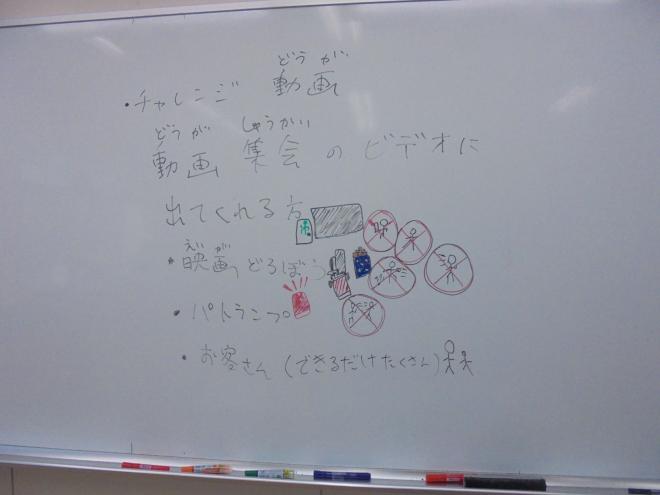 どうが
・チャレンジ 動画
どうが しゅうかい
動画 集会 の ビデオに
出てくれる方
えいが
・映画どろぼう
・パトランプ
・お客さん (できるだけたくさん)